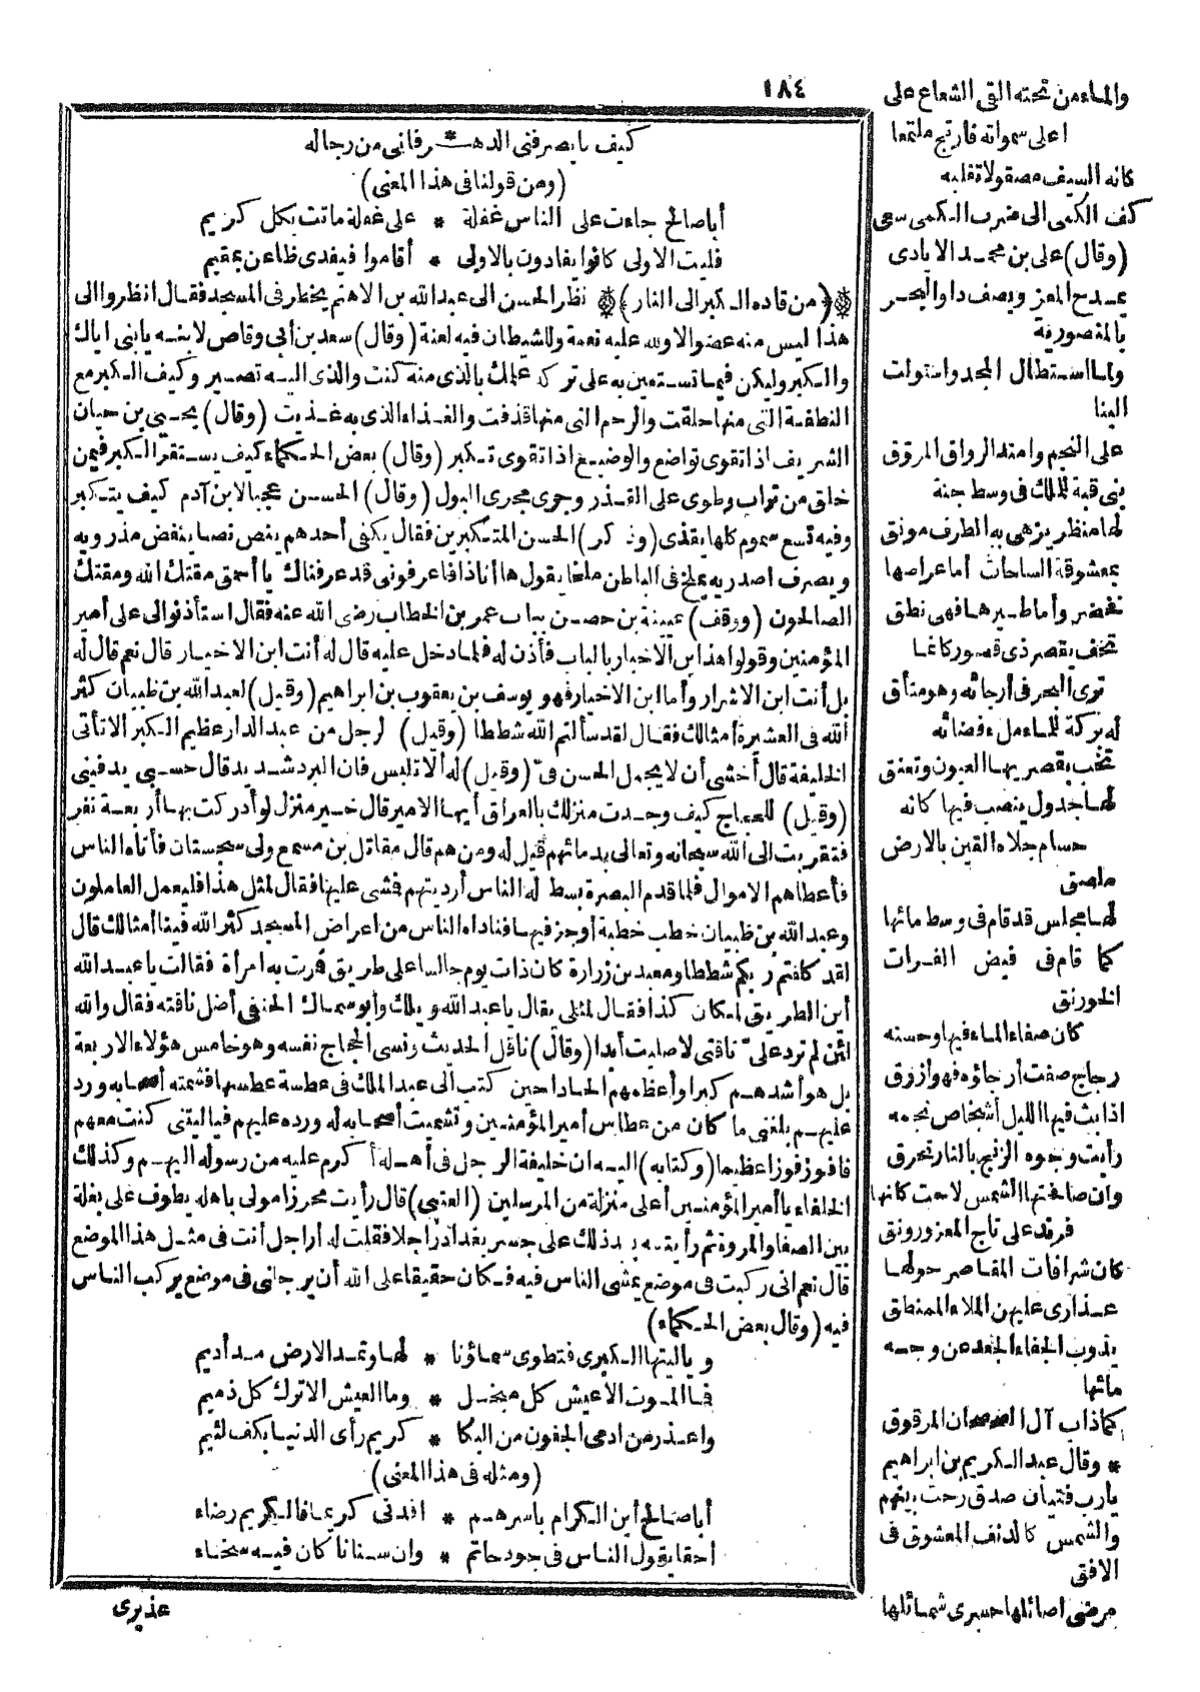 ١٨٤
كيف يا يصرفني الده * ر فاني من رجاله
(ومن قولنا في هذا المعنى)
أبا صالح جاءت على الناس غفلة * على غفلة ماتت بكل كريم
فليت الاولى كانوا يفادون بالاولى * أقاموا فيفدى ظاعن بمقيم
(من قاده الكبر الى النار) نظر الحسن الى عبد الله بن الاهتم يخطر في المسجد فقال انظروا الى
هذا ليس منه عضو الا ولله عليه نعمة وللشيطان فيه لعنة (وقال) سعد بن أبي وقاص لابنه يا بني اياك
والكبر وليكن فيما تستعين به على تركه علمك بالذي منه كنت والذي اليه تصير وكيف الكبر مع
النطفة التي منها خلقت والرحم التي منها قذفت والغذاء الذي به غذيت (وقال) يحيى بن حيان
الشريف اذا تقوى تواضع والوضيع اذا تقوى تكبر (وقال) بعض الحكماء كيف يستقر الكبر فيمن
خلق من تراب وطوى على القذر وجرى مجرى البول (وقال) الحسن عجبا لابن آدم كيف يتكبر
وفيه تسع سموم كلها يقذى (وذكر) الحسن المتكبرين فقال يكفي أحدهم ينص نصا ينفض مذرويه
ويصرف اصدريه يملخ في الباطن ملخا يقول ها أنا ذا فاعرفوني قد عرفناك يا أحمق مقتك الله ومقتك
الصالحون (ووقف) عيينة بن حصن بباب عمر بن الخطاب رضى الله عنه فقال استأذنوا لى على أمير
المؤمنين وقولوا هذا ابن الاخيار بالباب فأذن له فلما دخل عليه قال له أنت ابن الاخيار قال نعم قال له
بل أنت ابن الاشرار وأما ابن الاخيار فهو يوسف بن يعقوب بن ابراهيم (وقيل) لعبد الله بن ظبيان كثر
الله في العشيرة أمثالك فقال لقد سألتم الله شططا (وقيل) لرجل من عبد الدار عظيم الكبر الا تأتى
الخليفة قال أخشى أن لا يحمل الجسر شرفي (وقيل) له ألا تلبس فان البرد شديد قال حسبي يدفيني
(وقيل) للحجاج كيف وجدت منزلك بالعراق أيها الامير قال خير منزل لو أدركت بها أربعة نفر
فتقربت الى الله سبحانه وتعالى بدمائهم قيل له ومن هم قال مقاتل بن مسمع ولى سجستان فأتاه الناس
فأعطاهم الاموال فلما قدم البصرة بسط له الناس أرديتهم فمشى عليها فقال لمثل هذا فليعمل العاملون
وعبد الله بن ظبيان خطب خطبة أوجز فيها فناداه الناس من اعراض المسجد كثر الله فينا أمثالك قال
لقد كلفتم ربكم شططا ومعبد بن زرارة كان ذات يوم جالسا على طريق فمرت به امرأة فقالت يا عبد الله
أين الطريق لمكان كذا فقال لمثلى يقال يا عبد الله ويلك وأبو سماك الحنفي أضل ناقته فقال والله
لئن لم ترد علىّ ناقتى لا صليت أبدا (وقال) ناقل الحديث ونسى الحجاج نفسه وهو خامس هؤلاء الاربعة
بل هو أشدهم كبرا وأعظمهم الحادا حين كتب الى عبد الملك في عطسة عطسها فشمته أصحابه ورد
عليهم بلغني ما كان من عطاس أمير المؤمنين وتشميت أصحابه له ورده عليهم فياليتني كنت معهم
فافوز فوزا عظيما (وكتابه) اليه ان خليفة الرجل في أهله أكرم عليه من رسوله اليهم وكذلك
الخلفاء يا أمير المؤمنين أعلى منزلة من المرسلين (العتبى) قال رأيت محرزا مولى باهله يطوف على بغلة
بين الصفا والمروة ثم رأيته بعد ذلك على جسر بغداد راجلا فقلت له أراجل أنت في مثل هذا الموضع
قال نعم انى ركبت في موضع يمشى الناس فيه فكان حقيقا على الله أن يرجلنى في موضع يركب الناس
فيه (وقال بعض الحكماء)
وياليتها الكبرى فتطوى سماؤنا * لها وتمد الارض مد أديم
فما الموت الا عيش كل مبخل * وما العيش الا ترك كل ذميم
واعذر من ادمى الجفون من البكا * كريم رأى الدنيا بكف لئيم
(ومثله في هذا المعنى)
أبا صالح أين الكرام باسرهم * افدنى كريما فالكريم رضاء
أحقا يقول الناس في جود حاتم * وان سنانا كان فيه سخاء
عذيرى
والماء من تحته القى الشعاع على
اعلى سمواته فارتج ملتمعا
كانه السيف مصقولا تقلبه
كف الكمى الى ضرب الكمى سعى
(وقال) على بن محمد الايادى
يمدح المعز ويصف دار البحر
بالمنصورية
ولما استطال المجد واستولت
البنا
على النجم وامتد الرواق المروق
بنى قبة للملك في وسط جنة
لها منظر يزهى به الطرف مونق
بمعشوقة الساحات أما عراصها
فخضر وأما طيرها فهى نطق
تحف بقصر ذى قصور كانما
ترى البحر في أرجائه وهو متأق
له بركة للماء ملء فضائه
تخب بقصريها العيون وتعنق
لها جدول ينصب فيها كانه
حسام جلاه القين بالارض
ملصق
لها مجلس قد قام في وسط مائها
كما قام في فيض الفرات
الخورنق
كان صفاء الماء فيها وحسنه
زجاج صفت أرجاؤه فهو أزرق
اذا بث فيها الليل أشخاص نجمه
رأيت وجوه الزنج بالنار تحرق
وان صافحتها الشمس لاحت كانها
فرند على تاج المعز ورونق
كان شرافات المقاصر حولها
عذارى عليهن الملاء الممنطق
يذوب الجفاء الجعد عن وجه
مائها
كماذاب آل الصحصحان المرقوق
* وقال عبد الكريم بن ابراهيم
يارب فتيان صدق رحت بينهم
والشمس كالدنف المعشوق في
الافق
مرضى اصائلها حسرى شمائلها